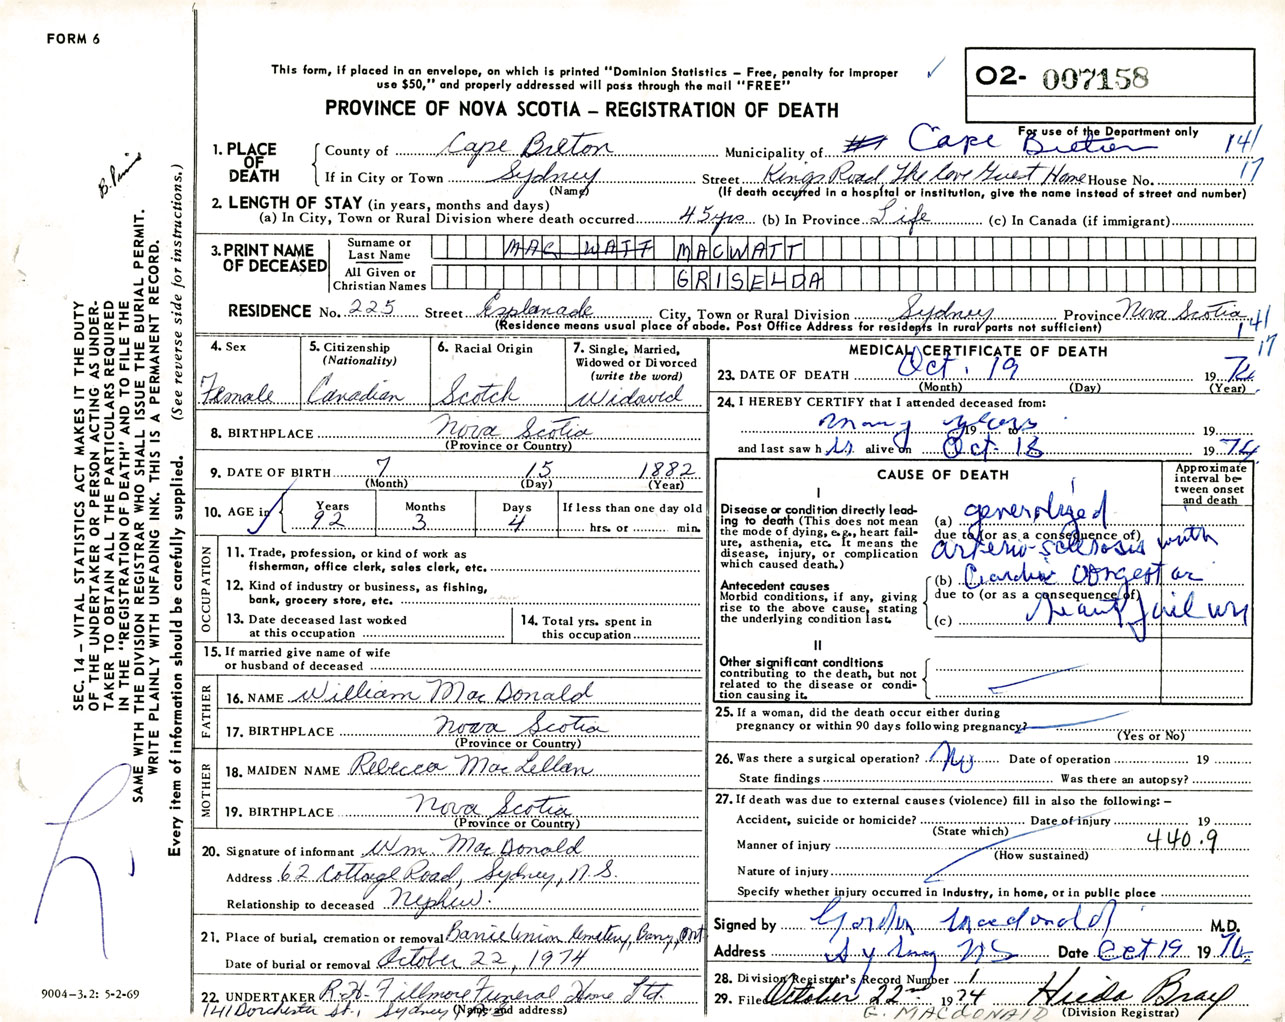 FORM 6
This form, if placed in an envelope, on which is printed "Dominion Statistics – Free, penalty for improper
use $50," and properly addressed will pass through the mail "FREE"
PROVINCE OF NOVA SCOTIA – REGISTRATION OF DEATH
O2- 007158
For use of the Department only
1. PLACE OF DEATH
County of Cape Breton Municipality of Cape Breton 141
If in City or Town Sydney Street Kings Road, The Cove Guest Home House No. 17
(Name) (If death occurred in a hospital or institution, give the name instead of street and number)
2. LENGTH OF STAY (in years, months and days)
(a) In City, Town or Rural Division where death occurred 45 yrs (b) In Province Life (c) In Canada (if immigrant)
3. PRINT NAME OF DECEASED
Surname or Last Name MAC WATT MACWATT
All Given or Christian Names GRISELDA
RESIDENCE No. 225 Street Esplanade City, Town or Rural Division Sydney Province Nova Scotia
(Residence means usual place of abode. Post Office Address for residents in rural parts not sufficient)
141
17
4. Sex
Female
5. Citizenship
(Nationality)
Canadian
6. Racial Origin
Scotch
7. Single, Married,
Widowed or Divorced
(write the word)
Widowed
8. BIRTHPLACE Nova Scotia
(Province or Country)
9. DATE OF BIRTH 7 15 1882
(Month) (Day) (Year)
10. AGE in
Years Months Days If less than one day old
92 3 4 hrs. or min.
OCCUPATION
11. Trade, profession, or kind of work as
fisherman, office clerk, sales clerk, etc.
12. Kind of industry or business, as fishing,
bank, grocery store, etc.
13. Date deceased last worked
at this occupation
14. Total yrs. spent in
this occupation
15. If married give name of wife
or husband of deceased
FATHER
16. NAME William MacDonald
17. BIRTHPLACE Nova Scotia
(Province or Country)
MOTHER
18. MAIDEN NAME Rebecca MacLellan
19. BIRTHPLACE Nova Scotia
(Province or Country)
20. Signature of informant Wm. MacDonald
Address 62 Cottage Road, Sydney, N.S.
Relationship to deceased Nephew.
21. Place of burial, cremation or removal Union Cemetery, Ont
Date of burial or removal October 22, 1974
22. UNDERTAKER R.H. Fillmore Funeral Home Ltd.
741 Dorchester St., Sydney (Name and address)
MEDICAL CERTIFICATE OF DEATH
23. DATE OF DEATH Oct. 19 19 74
(Month) (Day) (Year)
24. I HEREBY CERTIFY that I attended deceased from:
many years 19 to 19
and last saw h alive on Oct. 18 19 74
CAUSE OF DEATH
Approximate
interval be-
tween onset
and death
I
Disease or condition directly lead-
ing to death (This does not mean
the mode of dying, e.g., heart fail-
ure, asthenia, etc. It means the
disease, injury, or complication
which caused death.)
(a) generalized
due to (or as a consequence of)
arterio-sclerosis with
Antecedent causes
Morbid conditions, if any, giving
rise to the above cause, stating
the underlying condition last.
(b) Cardiac
due to (or as a consequence of)
(c) heart failure
II
Other significant conditions
contributing to the death, but not
related to the disease or condi-
tion causing it.
25. If a woman, did the death occur either during
pregnancy or within 90 days following pregnancy?
(Yes or No)
26. Was there a surgical operation? No Date of operation 19
State findings Was there an autopsy?
27. If death was due to external causes (violence) fill in also the following: –
Accident, suicide or homicide? Date of injury 19
(State which)
Manner of injury 440.9
(How sustained)
Nature of injury
Specify whether injury occurred in industry, in home, or in public place
Signed by Gordon Macdonald M.D.
Address Sydney NS Date Oct 19 19 74
28. Division Registrar's Record Number 1
29. Filed October 22nd 1974 Hilda Bray
G. MACDONALD (Division Registrar)
SEC. 14 – VITAL STATISTICS ACT MAKES IT THE DUTY
OF THE UNDERTAKER OR PERSON ACTING AS UNDER-
TAKER TO OBTAIN ALL THE PARTICULARS REQUIRED
IN THE "REGISTRATION OF DEATH" AND TO FILE THE
SAME WITH THE DIVISION REGISTRAR WHO SHALL ISSUE THE BURIAL PERMIT.
WRITE PLAINLY WITH UNFADING INK. THIS IS A PERMANENT RECORD.
Every item of information should be carefully supplied. (See reverse side for instructions.)
9004-3.2: 5-2-69